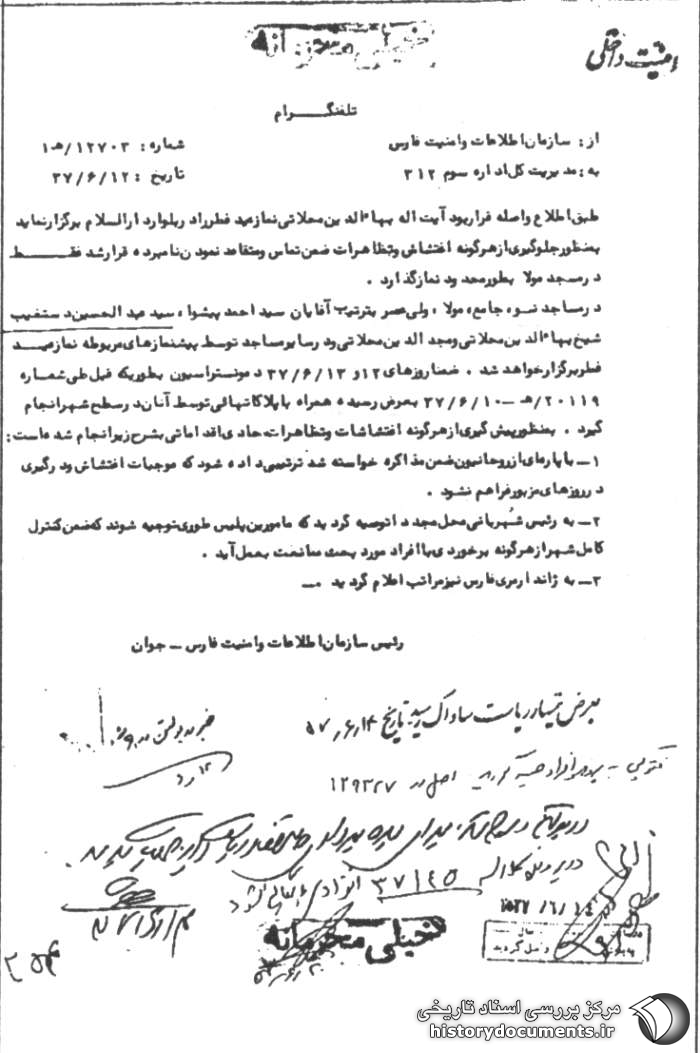 خیلی محرمانه
امنیت داخلی
تلفنگرام
از: سازمان اطلاعات و امنیت فارس شماره: ۱۲۷۰۳/هـ۱
به: مدیریت کل اداره سوم ۳۱۲ تاریخ: ۳۷/۶/۱۲
طبق اطلاع واصله قرار بود آیت اله بهاءالدین محلاتی نماز عید فطر را در بلوار دارالسلام برگزار نماید
بمنظور جلوگیری از هرگونه اغتشاش و تظاهرات ضمن تماس و متقاعد نمودن نامبرده قرار شد فقط
در مسجد مولا بطور محدود نماز گذارد .
در مساجد نو، جامع، مولا، ولی عصر بترتیب آقایان سید احمد پیشوا، سید عبدالحسین دستغیب
شیخ بهاءالدین محلاتی و مجدالدین محلاتی و در سایر مساجد توسط پیشنمازهای مربوطه نماز عید
فطر برگزار خواهد شد . ضمنا روزهای ۱۲ و ۳۷/۶/۱۳ دمونستراسیون بطوریکه قبل طی شماره
۲۰۱۱۹/هـ ـ ۳۷/۶/۱۰ بعرض رسیده همراه با پلاکاتهائی توسط آنان در سطح شهر انجام
گیرد . بمنظور پیش گیری از هرگونه اغتشاشات و تظاهرات حادی اقداماتی بشرح زیر انجام شده است:
۱ـ با پاره‌ای از روحانیون ضمن مذاکره خواسته شد ترتیبی داده شود که موجبات اغتشاش و درگیری
در روزهای مزبور فراهم نشود .
۲ـ به رئیس شهربانی محل مجددا توصیه گردید که مامورین پلیس طوری توجیه شوند که ضمن کنترل
کامل شهر از هرگونه برخوردی با افراد مورد بحث ممانعت بعمل آید .
۳ـ به ژاندارمری فارس نیز مراتب اعلام گردید .ـ
رئیس سازمان اطلاعات و امنیت فارس ـ جوان
بعرض تیمسار ریاست ساواک رسید تاریخ ۵۷/۶/۱۴
خبر در بولتن
اصل در ۱۲۹۳۲۷
در پرونده کلاسه ۳۷۱۴۵ انفرادی بایگانی شود
خیلی محرمانه
۳۵۴
مرکز بررسی اسناد تاریخی
historydocuments.ir